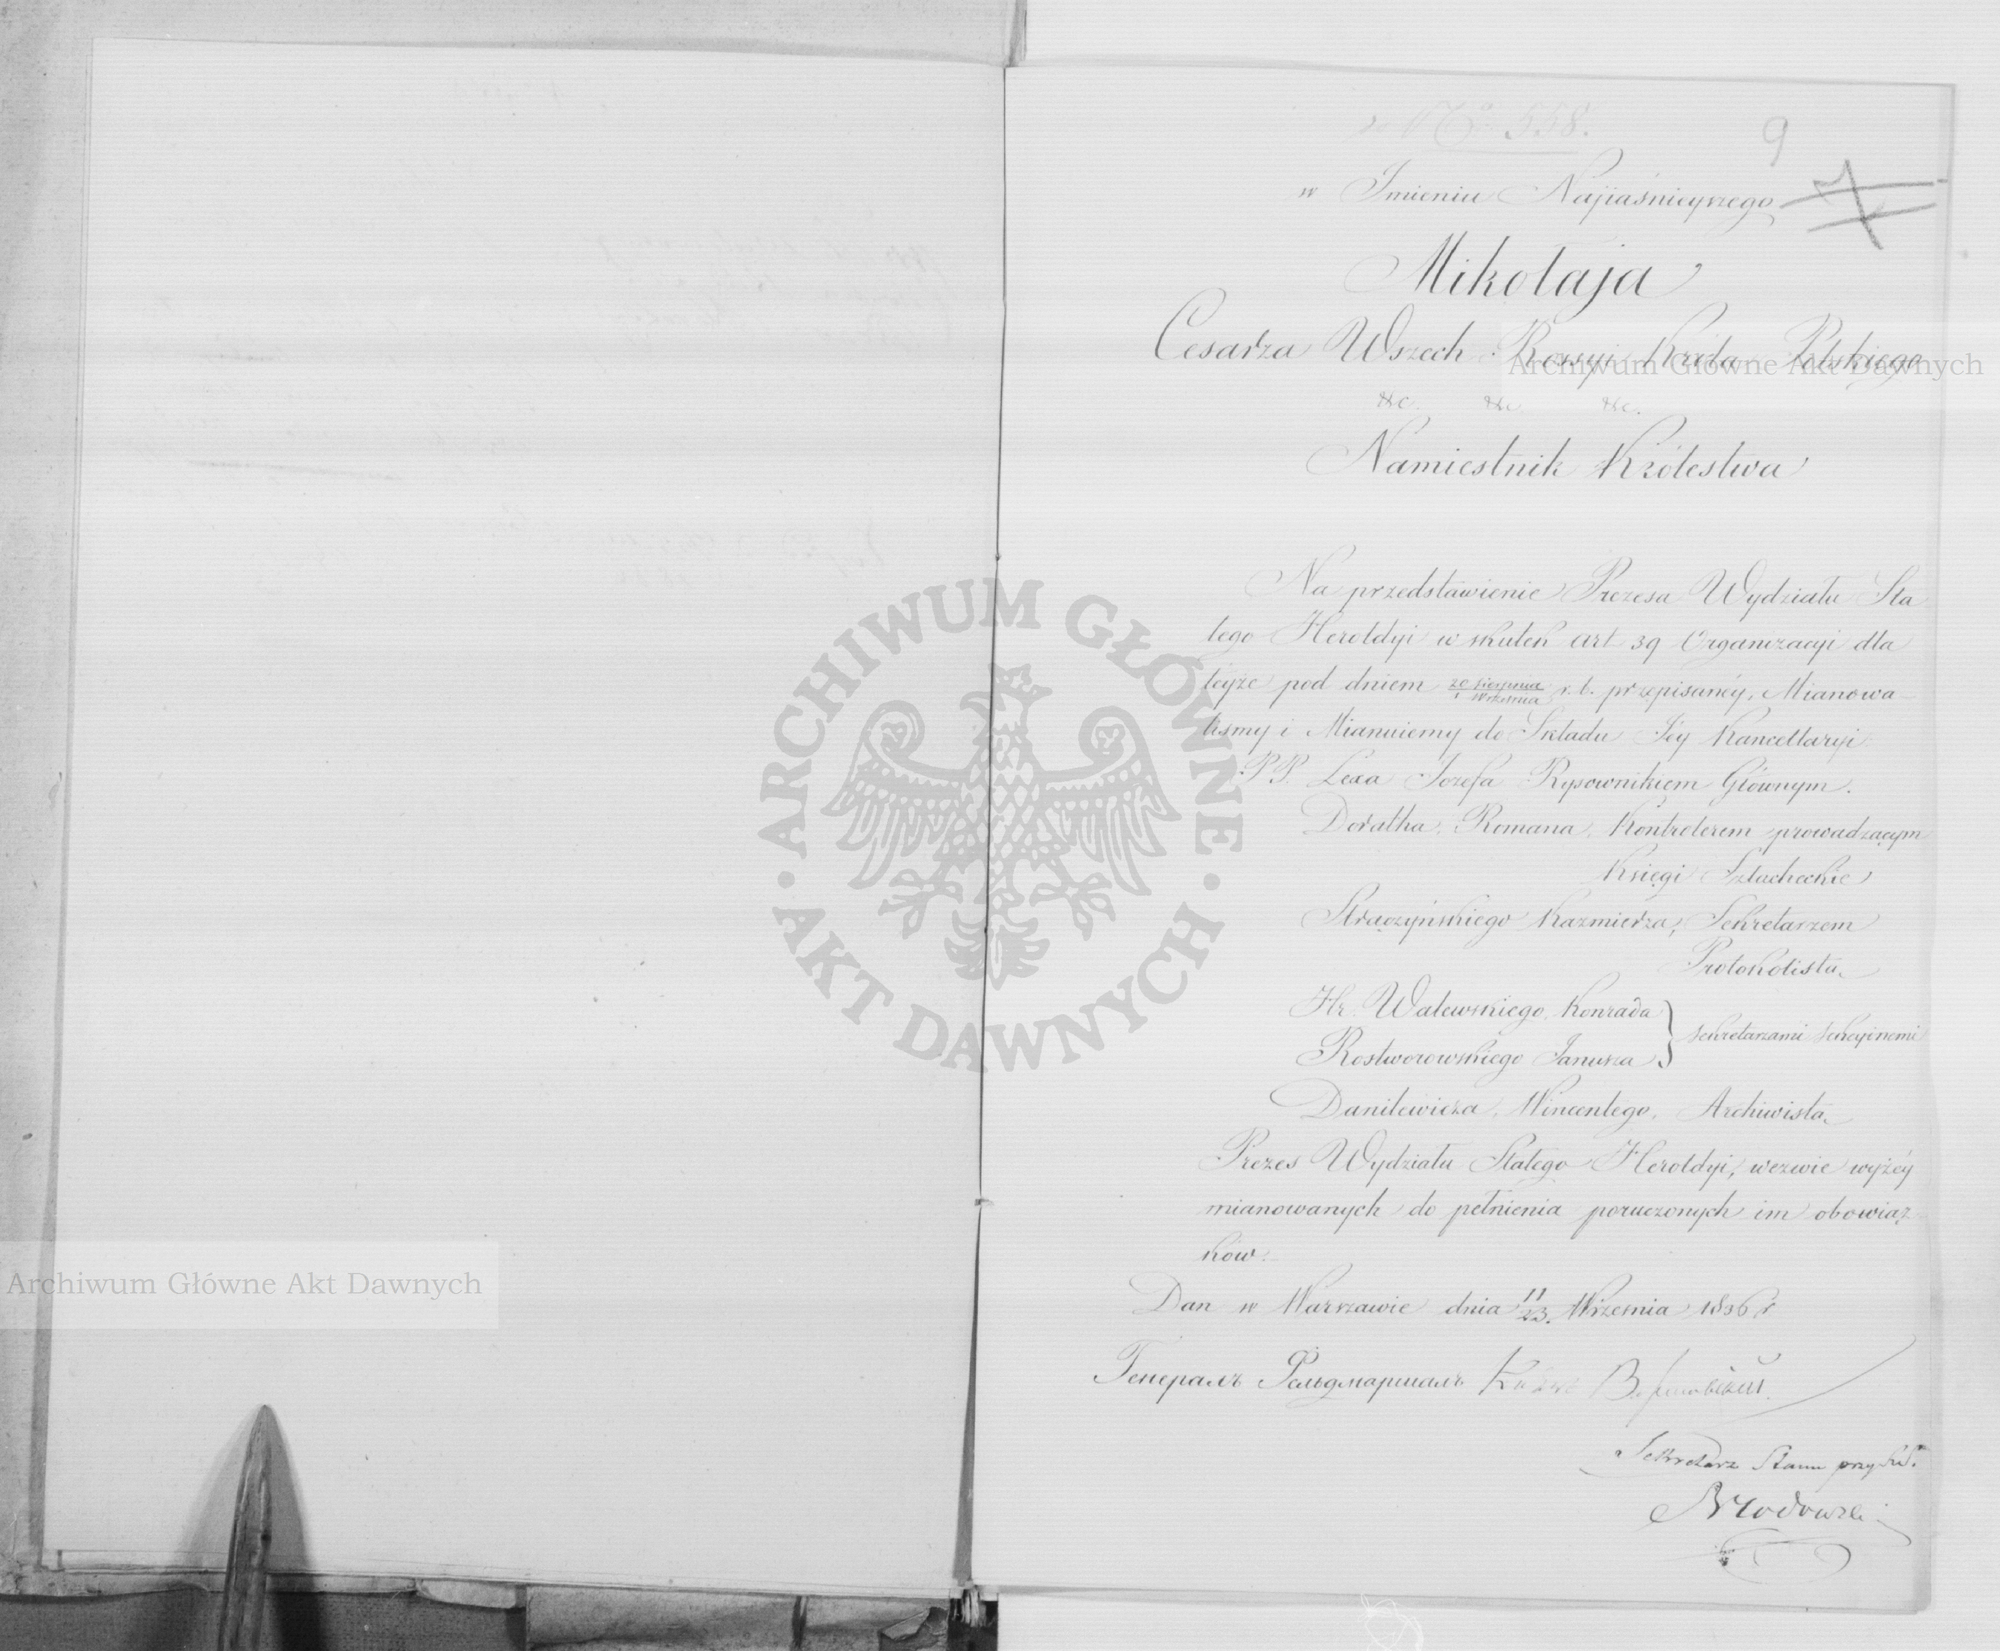 No 558.
9
w Imieniu Najiaśnieyszego
Mikołaja
Cesarza Wszech Rossyi Króla Polskiego
&c. &c. &c.
Namiestnik Królestwa
Na przedstawienie Prezesa Wydziału Sta
łego Heroldyi w skutek art 39 Organizacyi dla
téyże pod dniem 20 Sierpnia / 1 Września r. b. przepisanéy, Mianowa
liśmy i Mianuiemy do Składu Iéy Kancellaryi
PP. Lexa Jozefa Rysownikiem Głównym.
Doratha Romana, Kontrolerem prowadzącym
Księgi Szlacheckie
Strączyńskiego Kazmierza, Sekretarzem
Protokolistą.
Hr. Walewskiego Konrada
Rostworowskiego Janusza } Sekretarzami Sekcyinemi
Danilewicza Wincentego, Archiwistą.
Prezes Wydziału Stałego Heroldyi, wezwie wyżéy
mianowanych do pełnienia poruczonych im obowiąz
ków.
Dan w Warszawie dnia 11/23. Września 1836 r
Генералъ Фельдмаршалъ Князь Варшавскій
Sekretarz Stanu przy
Brodowski
ARCHIWUM GŁÓWNE AKT DAWNYCH
Archiwum Główne Akt Dawnych
Archiwum Główne Akt Dawnych